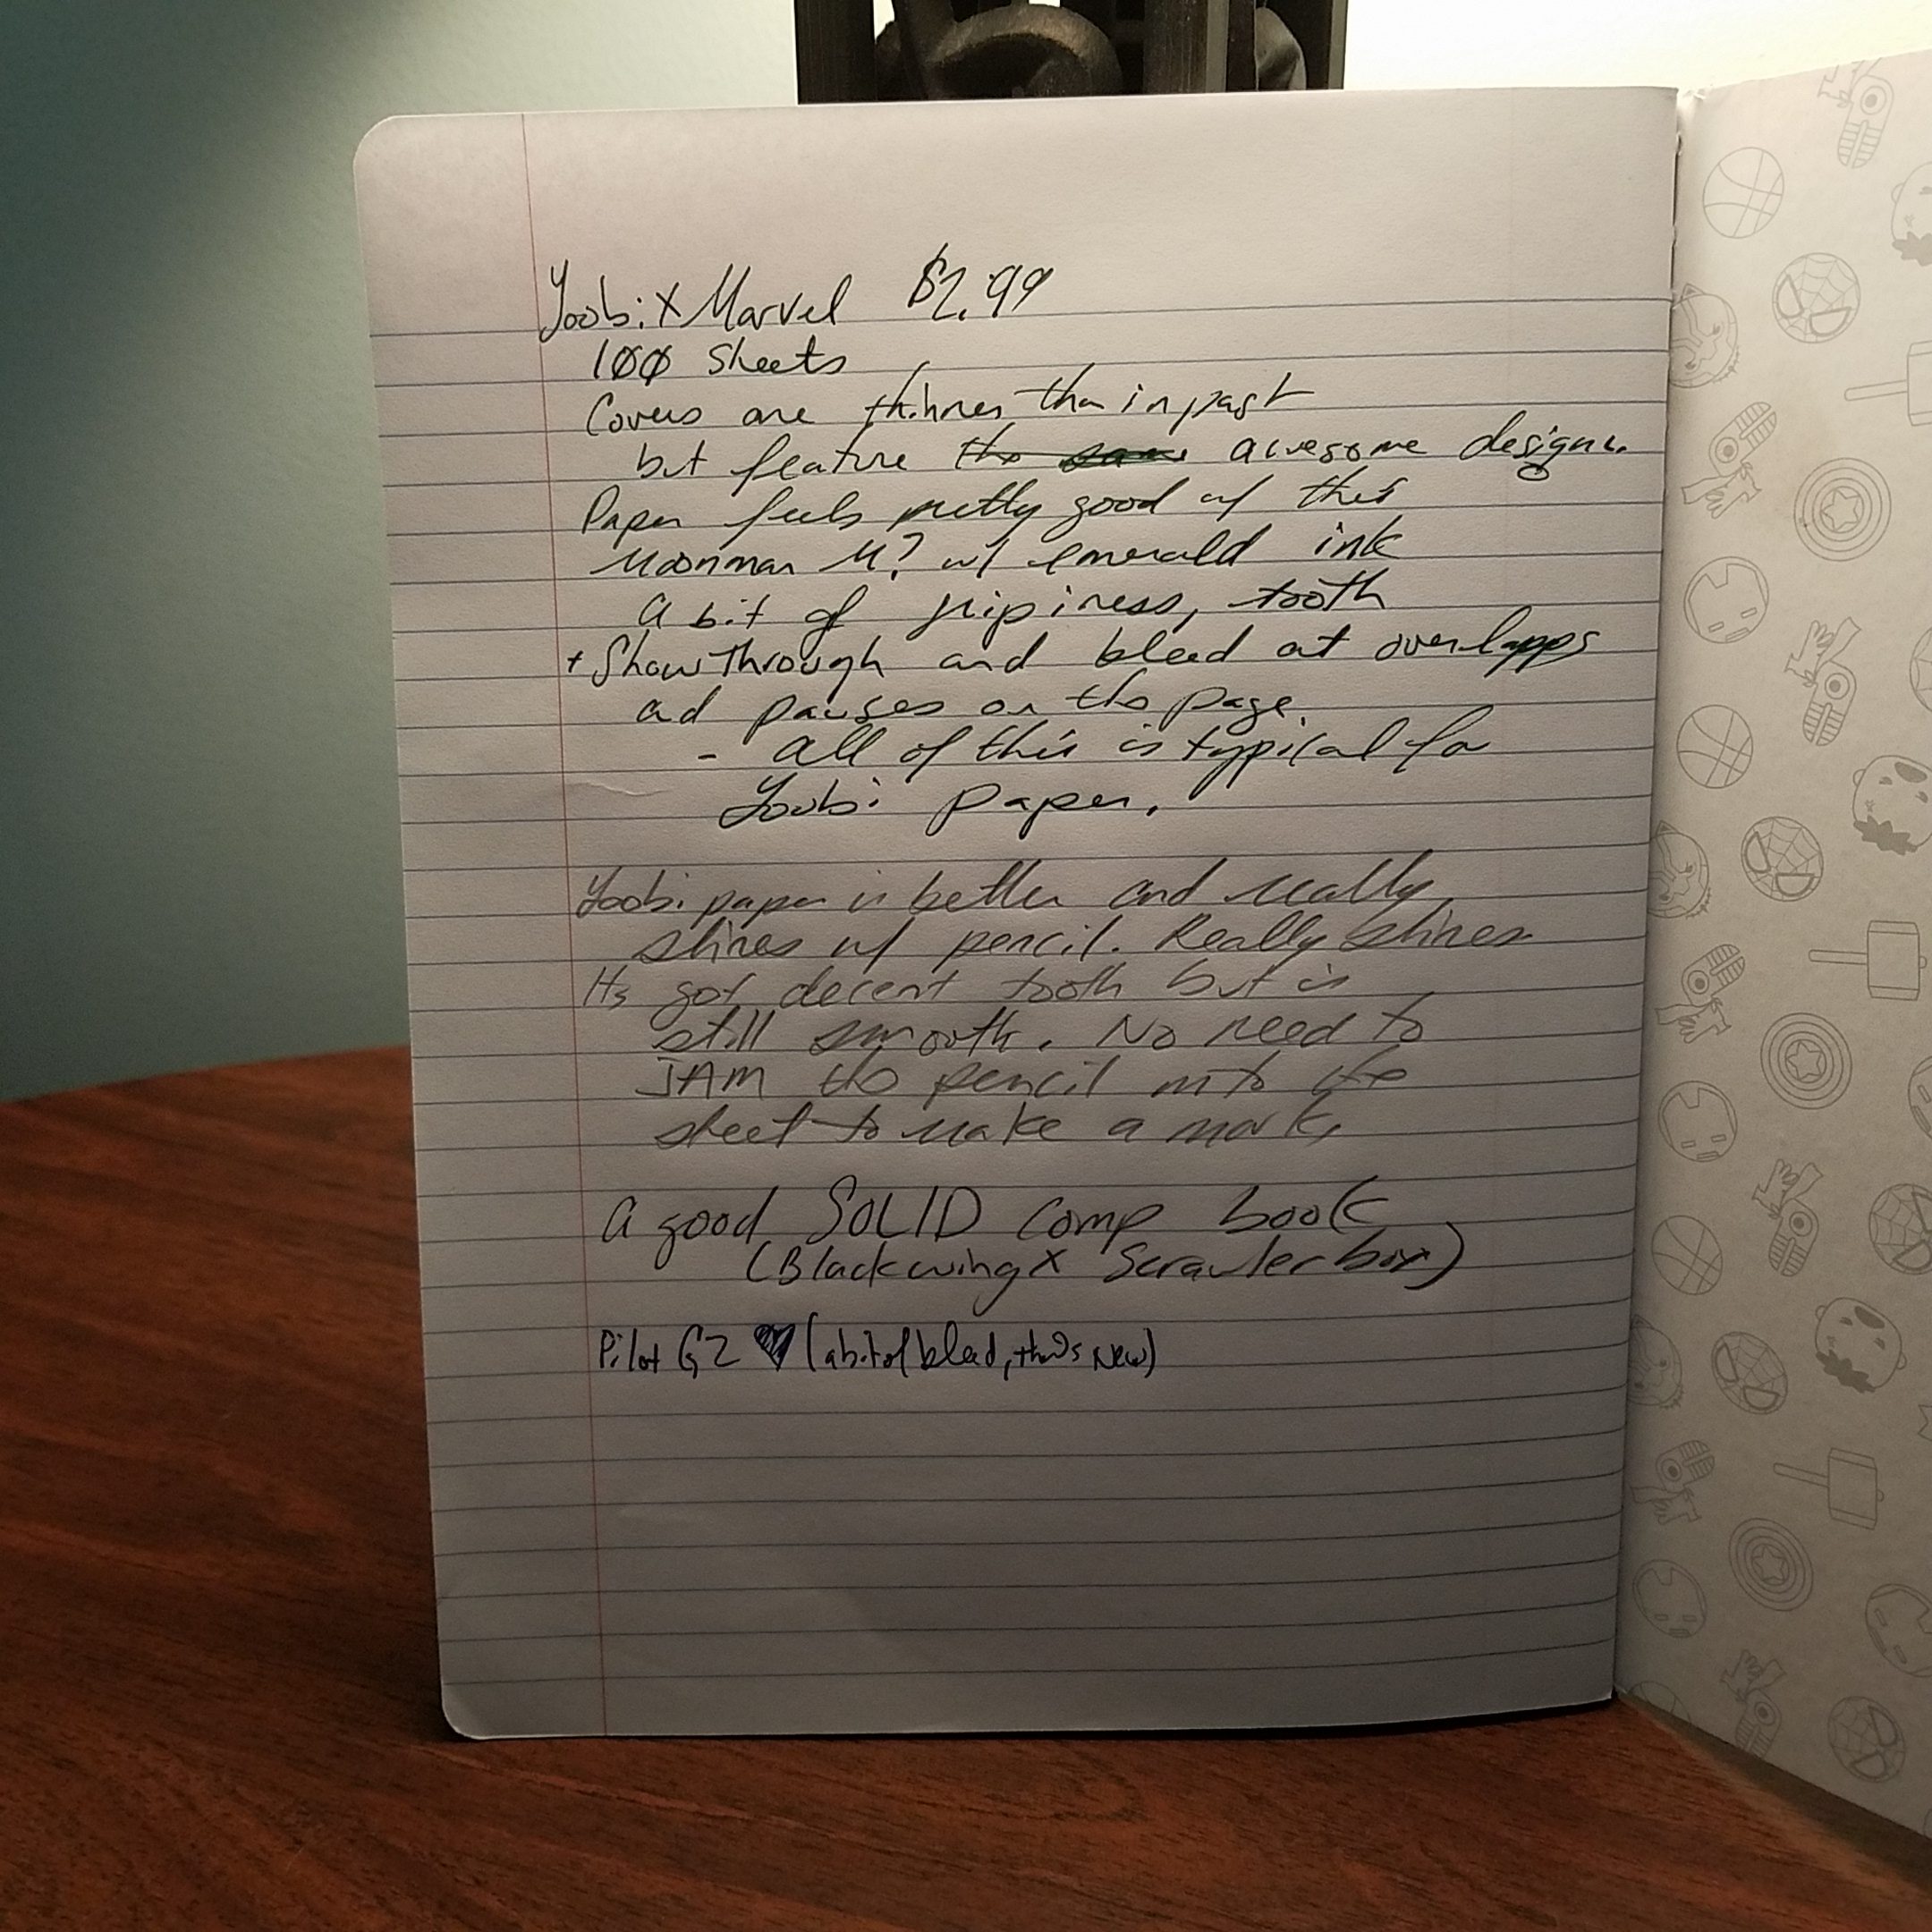 Yoobi X Marvel $2.99
100 Sheets
Covers are thinner than in past
but feature the same awesome designs.
Paper feels pretty good w/ this
Moonman M? w/ emerald ink
a bit of grippiness, tooth
+ Show Through and bleed at overlapps
ad pauses on the page.
- all of this is typical for
Yoobi paper.
Yoobi paper is better and really
shines w/ pencil. Really shines
Its got decent tooth but is
still smooth. No need to
JAM the pencil into the
sheet to make a mark.
A good SOLID comp book
(Blackwing X Scrawlerbox)
Pilot G2 ♥ (a bit of bleed, that's New)